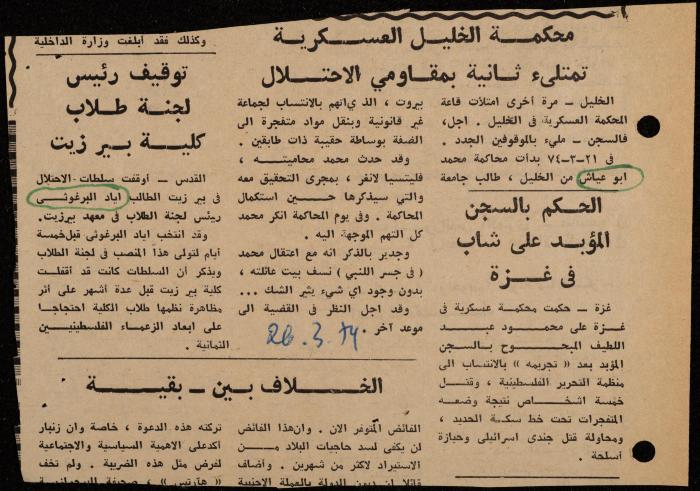 محكمة الخليل العسكرية
تمتلىء ثانية بمقاومي الاحتلال
الخليل – مرة أخرى امتلأت قاعة
المحكمة العسكرية في الخليل . اجل،
فالسجن – مليء بالموقوفين الجدد .
في ٢١-٣-٧٤ بدأت محاكمة محمد
ابو عياش من الخليل ، طالب جامعة
بيروت ، الذي اتهم بالانتساب لجماعة
غير قانونية وبنقل مواد متفجرة الى
الضفة بوساطة حقيبة ذات طابقين .
وقد حدث محمد محاميته ،
فليتسيا لانغر ، بمجرى التحقيق معه
والتي سيذكرها حين استكمال
المحاكمة . وفي يوم المحاكمة انكر محمد
كل التهم الموجهة اليه .
وجدير بالذكر انه مع اعتقال محمد
( في جسر اللنبي ) نسف بيت عائلته ،
بدون وجود اي شيء يثير الشك ...
وقد اجل النظر في القضية الى
موعد آخر .
26.3.74
الحكم بالسجن
المؤبد على شاب
في غزة
غزة – حكمت محكمة عسكرية في
غزة على محمود عبد
اللطيف المبحوح بالسجن
المؤبد بعد « تجريمه » بالانتساب الى
منظمة التحرير الفلسطينية ، وقتل
خمسة اشخاص نتيجة وضعه
المتفجرات تحت خط سكة الحديد ،
ومحاولة قتل جندى اسرائيلى وحيازة
أسلحة .
وكذلك فقد أبلغت وزارة الداخلية
توقيف رئيس
لجنة طلاب
كلية بير زيت
القدس – أوقفت سلطات الاحتلال
في بير زيت الطالب اياد البرغوثي
رئيس لجنة الطلاب في معهد بيرزيت.
وقد انتخب اياد البرغوثى قبل خمسة
أيام لتولى هذا المنصب في لجنة الطلاب
ويذكر أن السلطات كانت قد أقفلت
كلية بير زيت قبل عدة أشهر على أثر
مظاهرة نظمها طلاب الكلية احتجاجا
على ابعاد الزعماء الفلسطينيين
الثمانية .
الخلاف بين – بقية
الفائض المتوفر الان . وان هذا الفائض
لن يكفى لسد حاجيات البلاد من
الاستيراد لاكثر من شهرين . وأضاف
قائلا ان ديون الدولة بالعملة الاجنبية
تركته هذه الدعوة ، خاصة وان زنبار
أكد على الاهمية السياسية والاجتماعية
لفرض مثل هذه الضريبة . ولم تخف
« هآرتس » ، صحيفة